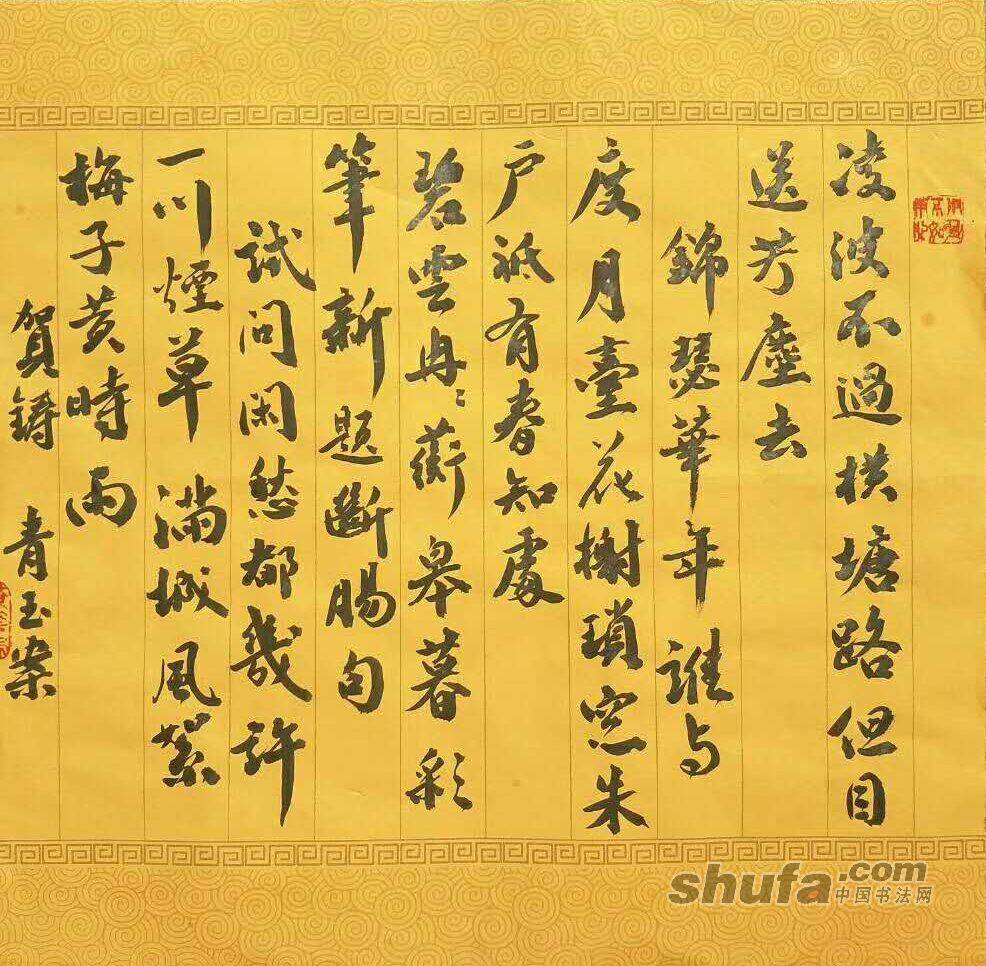 凌波不過橫塘路但目
送芳塵去
錦瑟華年誰与
度月臺花榭瑣窓朱
户祗有春知處
碧雲冉〻蘅皋暮彩
筆新題斷腸句
試問閑愁都幾許
一川煙草滿城風絮
梅子黄時雨
賀鑄 青玉案
shufa.com
中国书法网